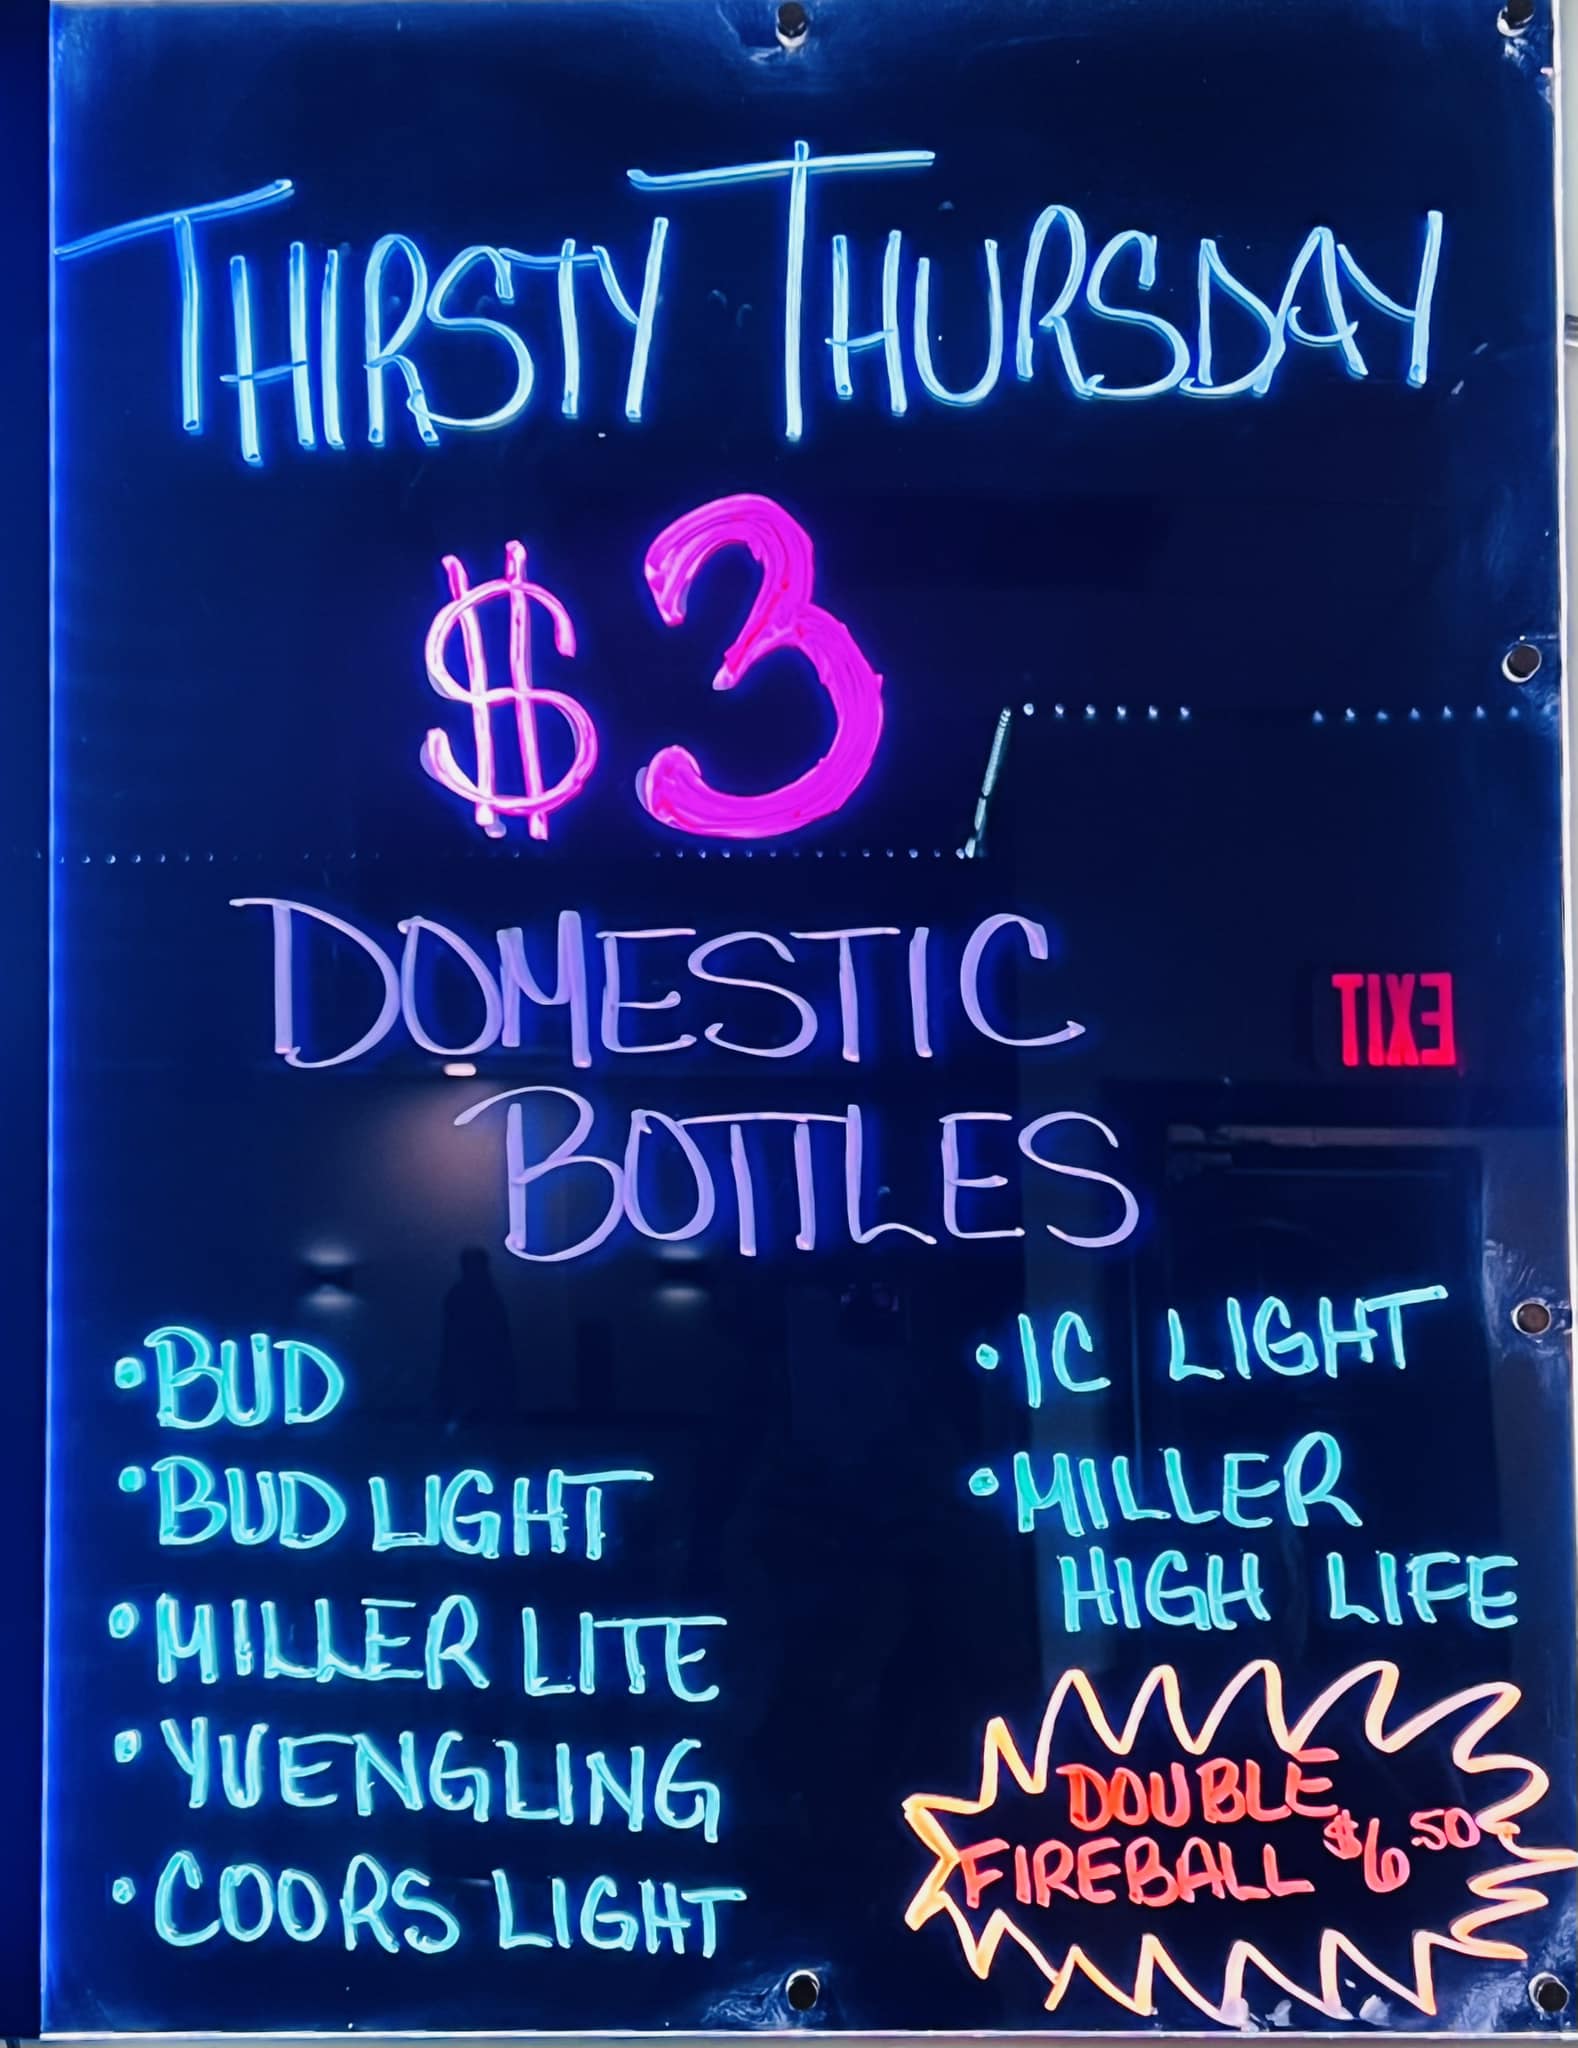 THIRSTY THURSDAY
$3
DOMESTIC
BOTTLES
• BUD
• BUD LIGHT
• MILLER LITE
• YUENGLING
• COORS LIGHT
• IC LIGHT
• MILLER
HIGH LIFE
DOUBLE
FIREBALL $6.50
EXIT